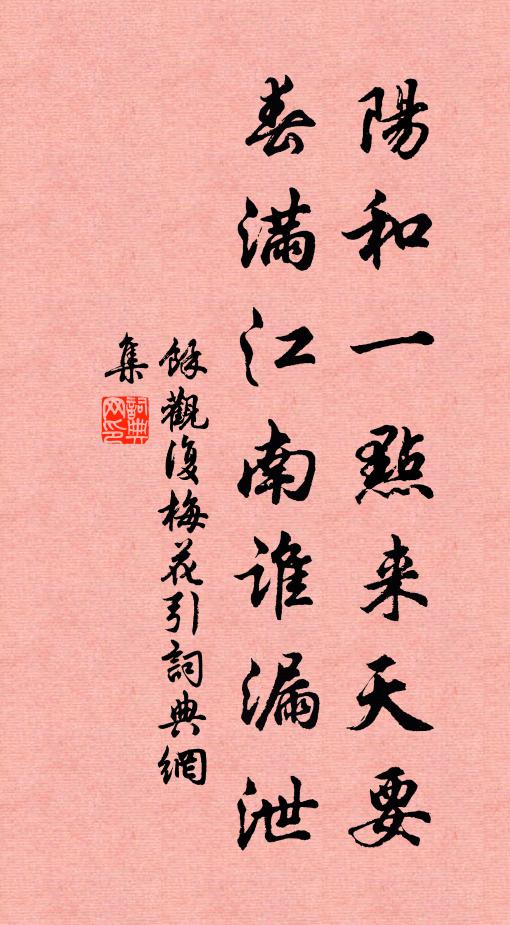 陽和一點来天要
春滿江南谁漏泄
餘觀復梅花引詞典網
集
詞典
网印